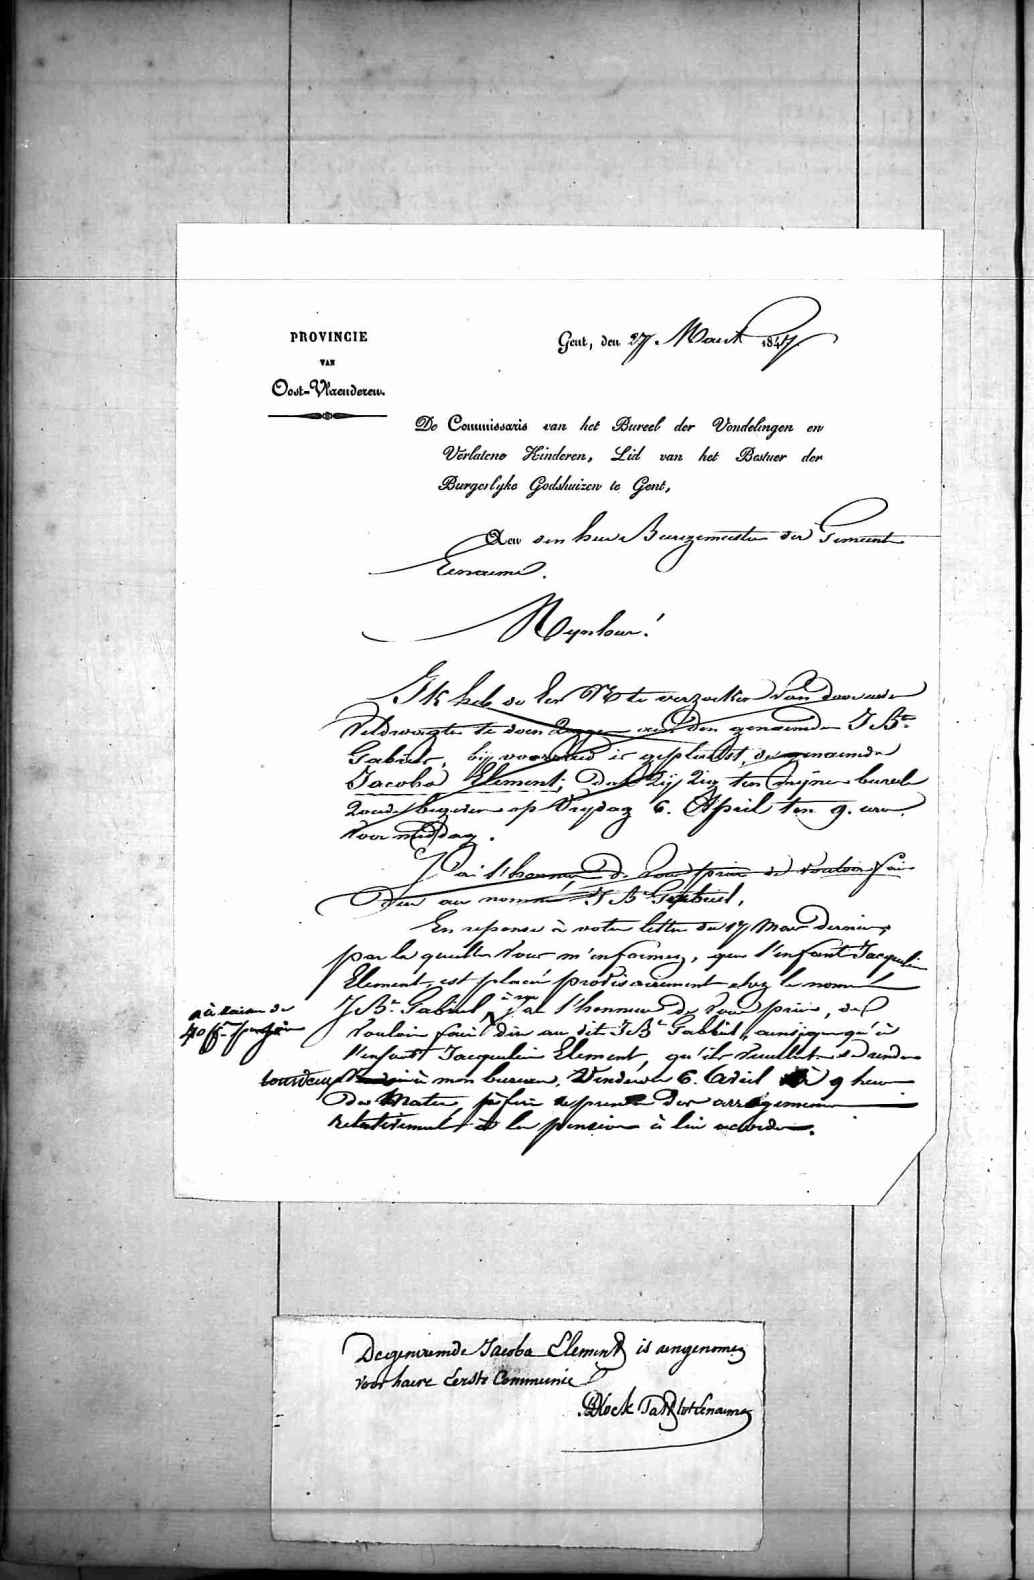 PROVINCIE
VAN
Oost-Vlaenderen.
Gent, den 27 Maert 1847.
De Commissaris van het Bureel der Vondelingen en
Verlatene Kinderen, Lid van het Bestuer der
Burgerlyke Godshuizen te Gent,
Aen den heer Burgemeester der Gemeente
Eenaeme.
Mynheer!
Ik heb de Eer UE te verzoeken van door uwen
Veldwagter te doen zeggen aen den genaemde J Bte
Gabriel, bij is geplaetst, de genaemde
Jacoba Element, dat Zij Zig ten mijne bureele
Zoude begeven op Vrydag 6. April ten 9. uren
voormiddag.
J'ai l'honneur de Vous prier de vouloir faire
dire au nommé J Bte Gabriel,
En reponse à votre lettre du 17 Mars dernier,
par la quelle Vous m'informez, que l'enfant Jacqueline
Element, est placée provisoirement chez le nommé
J Bte Gabriel, j'ai l'honneur de Vous prier, de
Vouloir faire dire au dit J Bte Gabriel, ainsi qu'à
à raison de
40 frs
l'enfant Jacqueline Element, qu'ils veuillent se rendre
à mon bureau, Vendredi 6. Avril à 9 heures
du Matin des arrangemens
relativement à la pension à lui accorder.
De genaemde Jacoba Element is aengenomen
voor haere Eerste Communie
Block Past. tot Eename